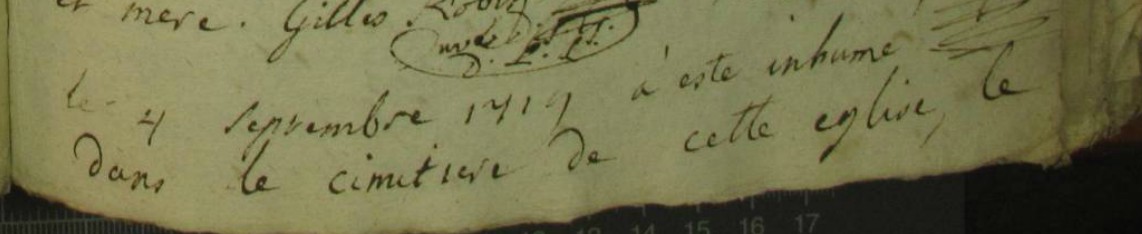 et mere. Gilles Robin
le 4 Septembre 1719 a este inhumé
dans le cimitiere de cette eglise, le
13 14 15 16 17